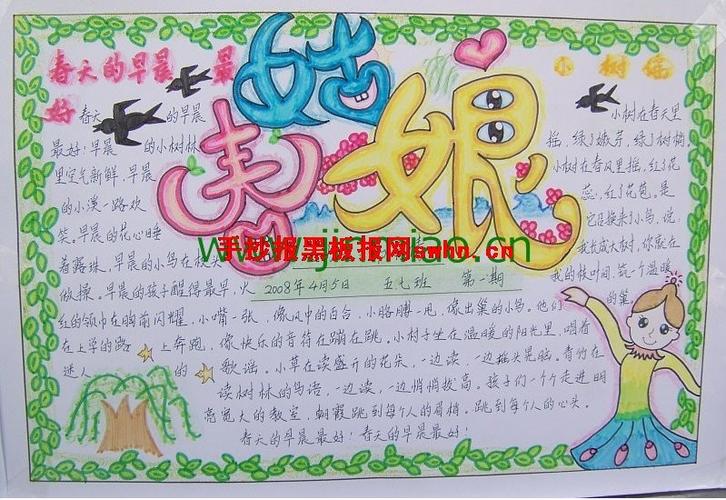 春姑娘
春天的早晨最
好
春天的早晨
最好！早晨的小树林
里空气新鲜，早晨
的小溪一路欢
笑。早晨的花心睡
着露珠，早晨的小鸟在枝头
做操，早晨的孩子醒得最早，火
红的领巾在胸前闪耀，小嘴一张，像风中的百合，小胳膊一甩，像出巢的小鸟。他们
在上学的路上奔跑，像快乐的音符在蹦在跳。小村子坐在温暖的阳光里，唱着
迷人的歌谣。小草在读盛开的花朵，一边读，一边摇头晃脑。青竹在
读树林的鸟语，一边读，一边悄悄拔高。孩子们一个个走进明
亮宽大的教室，朝霞跳到每个人的眉梢，跳到每个人的心头。
春天的早晨最好！春天的早晨最好！
小树谣
小树在春天里
摇，绿了嫩芽，绿了树梢，
小树在春风里摇，红了花
蕊，红了花苞。是
它召换来了小鸟，说：
我长成大树，你就在
我的枝叶间，筑一个温暖
的巢
2008年4月5日 五七班 第一期
手抄报黑板报网swhn.cn